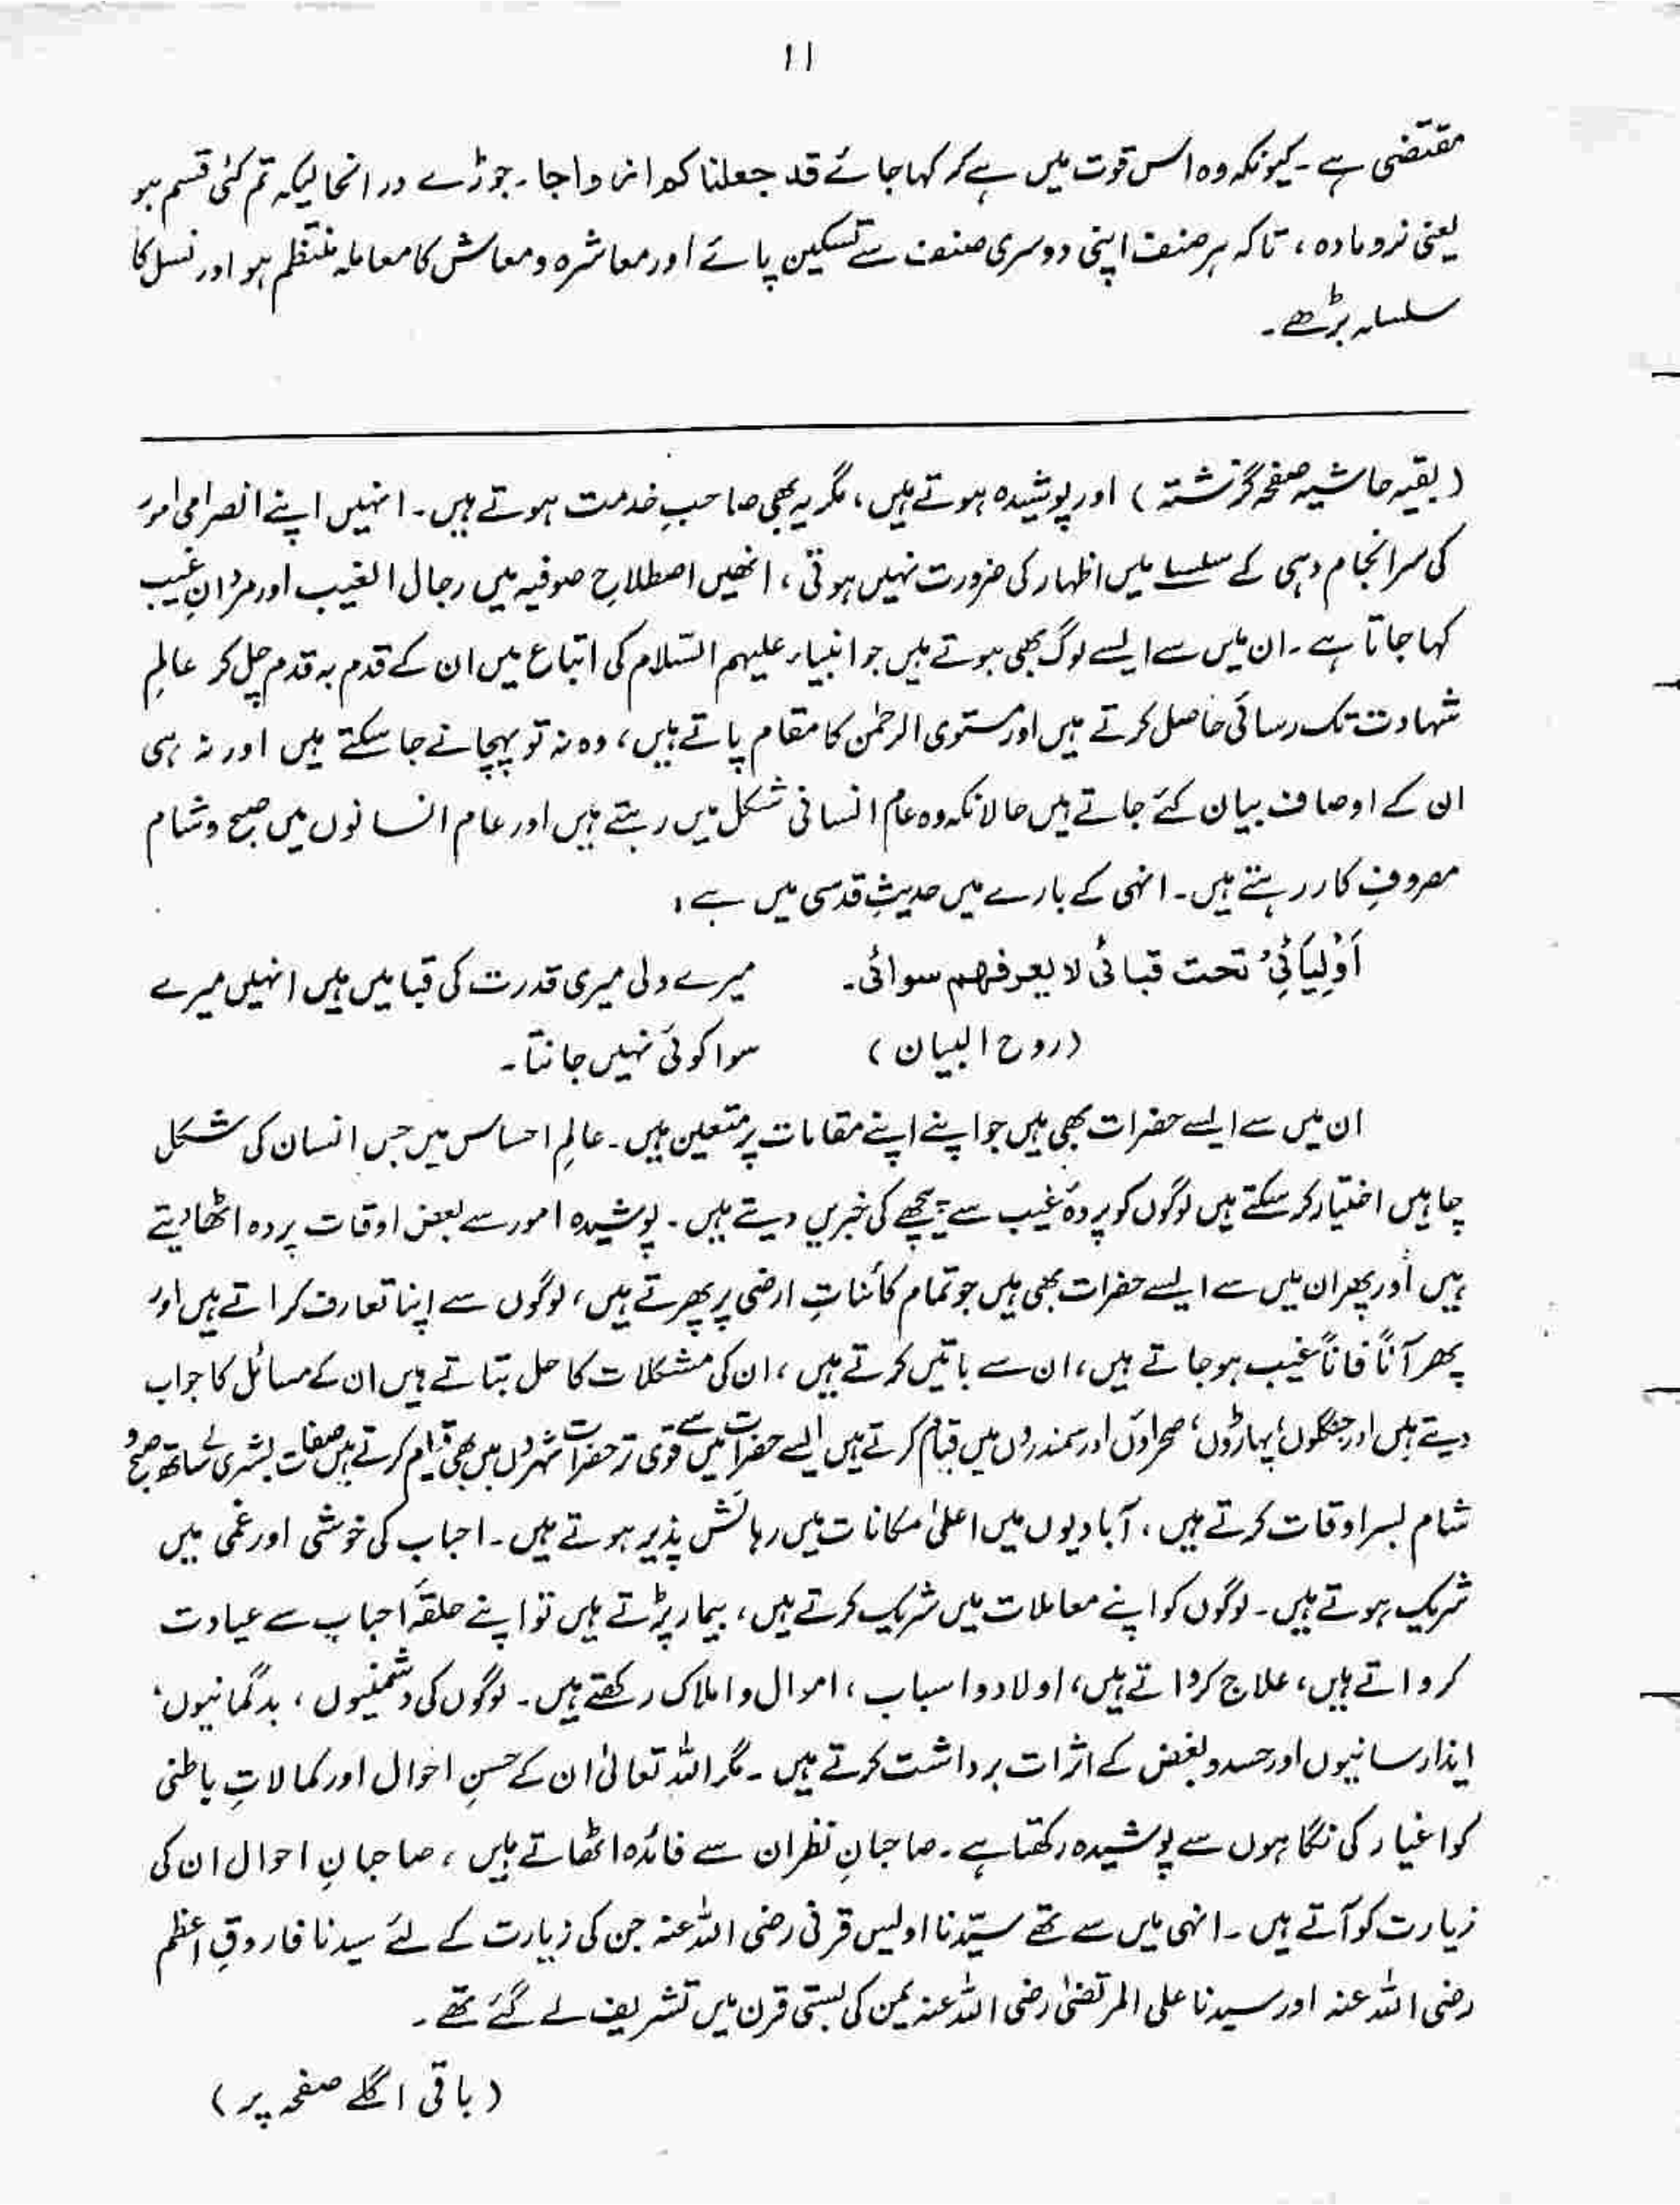 ۱۱
مقتضی ہے۔ کیونکہ وہ اس قوت میں ہے کہ کہا جائے قد جعلناکم ازواجا۔ جوڑے در انحالیکہ تم کئی قسم ہو
یعنی نر و مادہ، تاکہ ہر صنف اپنی دوسری صنف سے تسکین پائے اور معاشرہ و معاش کا معاملہ منتظم ہو اور نسل کا
سلسلہ بڑھے۔
(بقیہ حاشیہ صفحہ گزشتہ) اور پوشیدہ ہوتے ہیں، مگر یہ بھی صاحبِ خدمت ہوتے ہیں۔ انہیں اپنے انصرامی امور
کی سر انجام دہی کے سلسلے میں اظہار کی ضرورت نہیں ہوتی، انھیں اصطلاحِ صوفیہ میں رجال الغیب اور مردانِ غیب
کہا جاتا ہے۔ ان میں سے ایسے لوگ بھی ہوتے ہیں جو انبیاء علیہم السّلام کی اتباع میں ان کے قدم بہ قدم چل کر عالمِ
شہادت تک رسائی حاصل کرتے ہیں اور مستوی الرحمٰن کا مقام پاتے ہیں، وہ نہ تو پہچانے جا سکتے ہیں اور نہ ہی
ان کے اوصاف بیان کئے جاتے ہیں حالانکہ وہ عام انسانی شکل میں رہتے ہیں اور عام انسانوں میں صبح و شام
مصروفِ کار رہتے ہیں۔ انہی کے بارے میں حدیثِ قدسی میں ہے:
اَوْلِیَائِیْ تحت قبائی لا یعرفھم سوائی۔ میرے ولی میری قدرت کی قبا میں ہیں انہیں میرے
(روح البیان) سوا کوئی نہیں جانتا۔
ان میں سے ایسے حضرات بھی ہیں جو اپنے اپنے مقامات پر متعین ہیں۔ عالمِ احساس میں جس انسان کی شکل
چاہیں اختیار کر سکتے ہیں لوگوں کو پردۂ غیب سے پیچھے کی خبریں دیتے ہیں۔ پوشیدہ امور سے بعض اوقات پردہ اٹھا دیتے
ہیں اور پھر ان میں سے ایسے حضرات بھی ہیں جو تمام کائناتِ ارضی پر پھرتے ہیں، لوگوں سے اپنا تعارف کراتے ہیں اور
پھر آناً فاناً غیب ہو جاتے ہیں، ان سے باتیں کرتے ہیں، ان کی مشکلات کا حل بتاتے ہیں ان کے مسائل کا جواب
دیتے ہیں اور جنگلوں، پہاڑوں، صحراؤں اور سمندروں میں قیام کرتے ہیں ایسے حضرات میں سے قوی تر حضرات شہروں میں بھی قیام کرتے ہیں صفات بشری کے ساتھ صبح و
شام بسر اوقات کرتے ہیں، آبادیوں میں اعلیٰ مکانات میں رہائش پذیر ہوتے ہیں۔ احباب کی خوشی اور غمی میں
شریک ہوتے ہیں۔ لوگوں کو اپنے معاملات میں شریک کرتے ہیں، بیمار پڑتے ہیں تو اپنے حلقۂ احباب سے عیادت
کرواتے ہیں، علاج کرواتے ہیں، اولاد و اسباب، اموال و املاک رکھتے ہیں۔ لوگوں کی دشمنیوں، بدگمانیوں،
ایذا رسانیوں اور حسد و بغض کے اثرات برداشت کرتے ہیں۔ مگر اللہ تعالیٰ ان کے حسنِ احوال اور کمالاتِ باطنی
کو اغیار کی نگاہوں سے پوشیدہ رکھتا ہے۔ صاحبانِ نظر ان سے فائدہ اٹھاتے ہیں، صاحبانِ احوال ان کی
زیارت کو آتے ہیں۔ انہی میں سے تھے سیّدنا اویس قرنی رضی اللہ عنہ جن کی زیارت کے لئے سیدنا فاروقِ اعظم
رضی اللہ عنہ اور سیدنا علی المرتضیٰ رضی اللہ عنہ یمن کی بستی قرن میں تشریف لے گئے تھے۔
(باقی اگلے صفحہ پر)